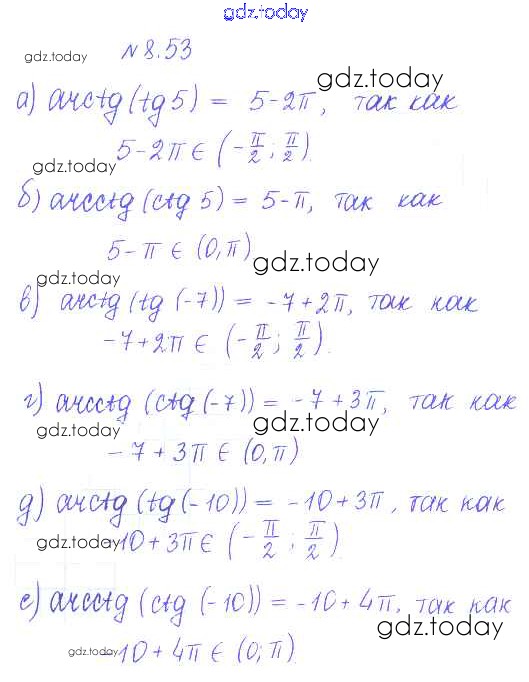 gdz.today
gdz.today
N 8.53
gdz.today
а) arctg (tg 5) = 5-2π, так как
5-2π ∈ (-π/2; π/2).
gdz.today
б) arcctg (ctg 5) = 5-π, так как
5-π ∈ (0,π)
gdz.today
gdz.today
в) arctg (tg (-7)) = -7+2π, так как
-7+2π ∈ (-π/2; π/2).
г) arcctg (ctg (-7)) = -7+3π, так как
gdz.today
gdz.today
-7+3π ∈ (0,π)
д) arctg (tg (-10)) = -10+3π, так как
gdz.today
gdz.today
-10+3π ∈ (-π/2; π/2)
е) arcctg (ctg (-10)) = -10+4π, так как
gdz.today
gdz.today
-10+4π ∈ (0; π)